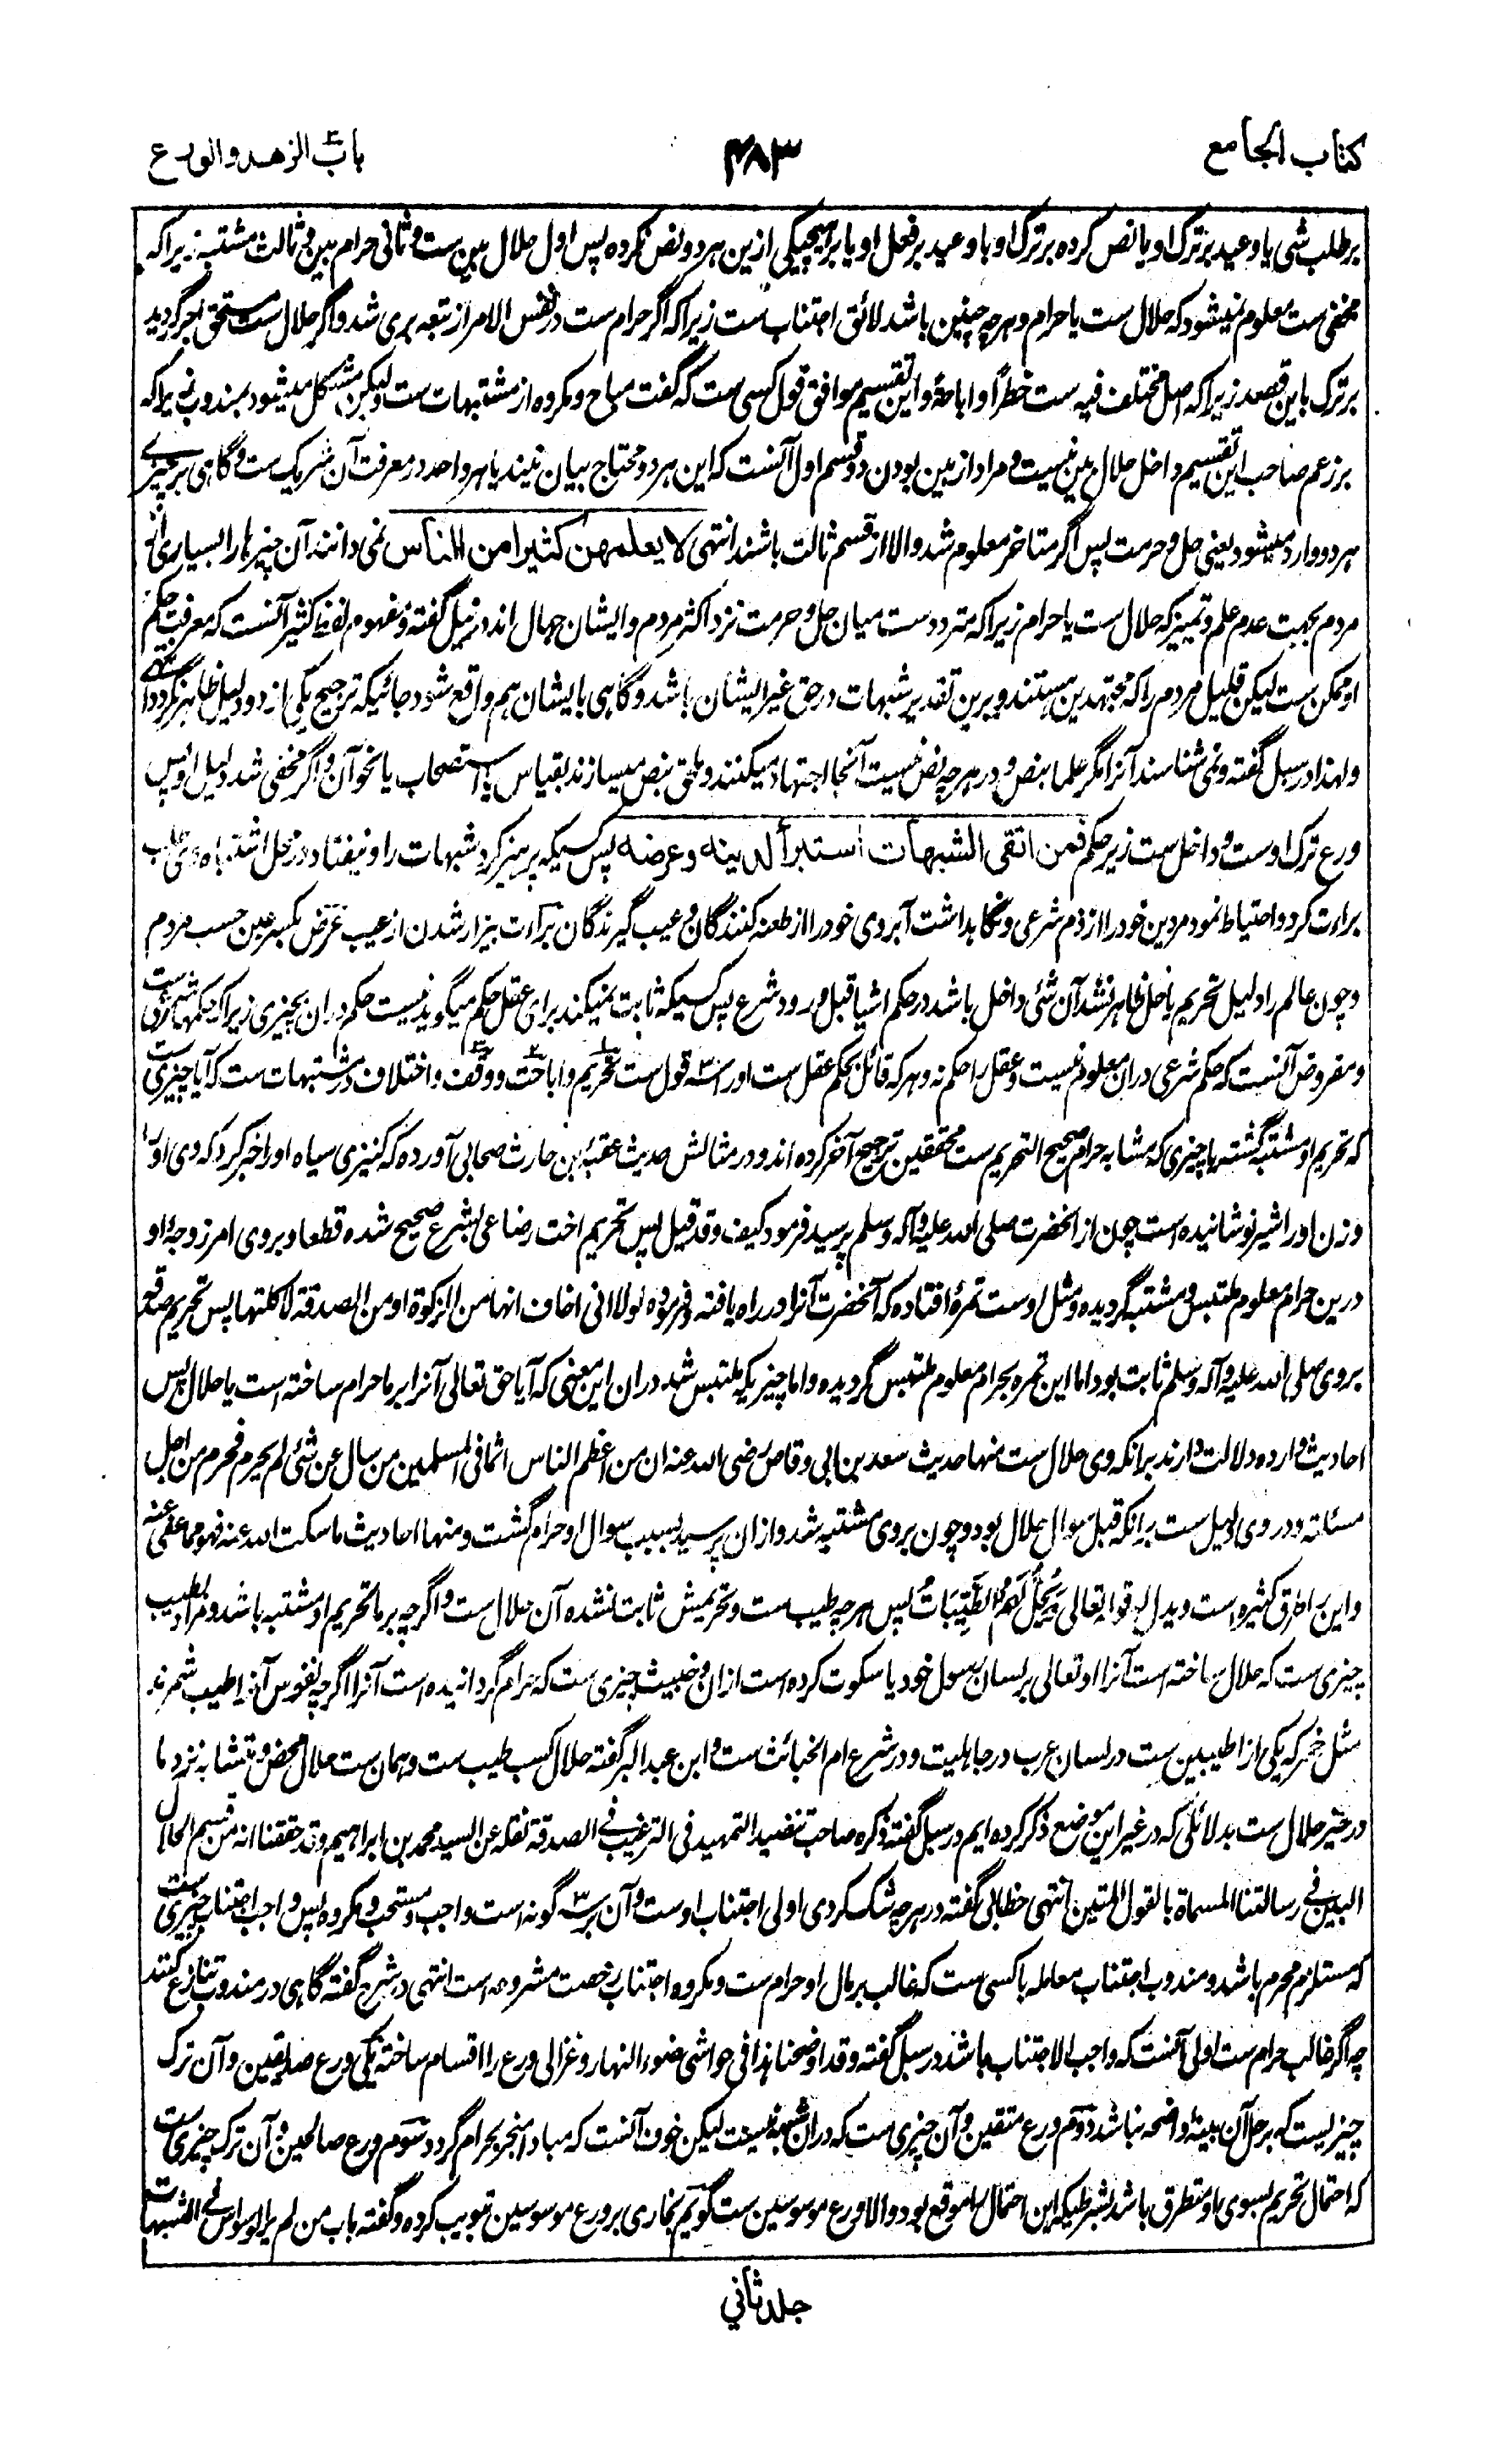 کتاب الجامع
۴۸۳
باب الزهد والورع
بر طلب شی یا وعید بر ترک او یا نص کرده بر ترک او با وعید بر فعل او یا بر هیچیکی ازین هر دو نص نکرده پس اول حلال بین ست و ثانی حرام بین و ثالث مشتبه زیرا که
مخفی ست معلوم نمیشود که حلال ست یا حرام و هر چه چنین باشد لائق اجتناب ست زیرا که اگر حرام ست در نفس الامر از تبعه بری شد و اگر حلال ست مستحق اجر گردید
بر ترک باین قصد زیرا که اصل مختلف فیه ست حظرا و اباحة و این تقسیم موافق قول کسی ست که گفت مباح و مکروه از مشتبهات ست ولیکن مشکل میشود بمندوب زیرا که
بر زعم صاحب این تقسیم داخل حلال بین نیست و مراد از بین بودن دو قسم اول آنست که این هر دو محتاج بیان نیند یا هر واحد در معرفت آن شریک ست و گاهی بر چیزے
هر دو وارد میشود یعنی حل و حرمت پس اگر متاخر معلوم شد والا از قسم ثالث باشند انتهی لا یعلمهن کثیرا من الناس نمی دانند آن چیزها را بسیاری از
مردم بجهت عدم علم و تمیز که حلال ست یا حرام زیرا که متردد ست میان حل و حرمت نزد اکثر مردم و ایشان جهال اند در نیل گفته و مفهوم لفظ کثیر آنست که معرفت حکم
او ممکن ست لیکن قلیل مردم را که مجتهدین هستند و برین تقدیر شبهات در حق غیر ایشان باشد و گاهی با ایشان هم واقع شود جائیکه ترجیح یکی از دو دلیل ظاهر نگردد انتهے
و لهذا در سبل گفته و نمی شناسند آنرا مگر علما بنص و در هر چه نص نیست آنجا اجتهاد میکنند و ملحق بنص میسازند بقیاس یا استصحاب یا نحو آن و اگر مخفی شد دلیل او پس
ورع ترک اوست و داخل ست زیر حکم فمن اتقی الشبهات استبرأ لدینه و عرضه پس کسیکه پرهیز کرد شبهات را و نیفتاد در محل اشتباه وی طلب
براءت کرد و احتیاط نمود مر دین خود را از ذم شرعی و نگاهداشت آبروی خود را از طعنه کنندگان و عیب گیرندگان براءت بیزار شدن از عیب عرض بکسر عین حسب مردم
و چون عالم را دلیل تحریم یا حل ظاهر نشد آن شئ داخل باشد در حکم اشیا قبل ورود شرع پس کسیکه ثابت نمیکند برای عقل حکم میگوید نیست حکم در ان بچیزی زیرا که حکمها شرعی ست
و مفروض آنست که حکم شرعی دران معلوم نیست و عقل را حکم نه و هر که قائل بحکم عقل ست او را سه قول ست تحریم و اباحت و وقف و اختلاف در مشتبهات ست که آیا چیزی ست
که تحریم او مشتبه گشته یا چیزی که مشابه حرام صحیح التحریم ست محققین ترجیح آخر کرده اند و در مثالش حدیث عقبه بن حارث صحابی آورده که کنیزی سیاه او را خبر کرد که وی او را
و زن او را شیر نوشانیده است چون از آنحضرت صلی الله علیه و آله وسلم پرسید فرمود کیف و قد قیل پس تحریم اخت رضاعی بشرع صحیح شده قطعا و بروی امر زوجه او
درین حرام معلوم ملتبس و مشتبه گردیده و مثل اوست تمره افتاده که آنحضرت آنرا در راه یافته و فرموده لولا انی اخاف انها من الزکوة او من الصدقة لاکلتها پس تحریم صدقه
بروی صلی الله علیه و آله وسلم ثابت بود اما این تمره بحرام معلوم ملتبس گردیده و اما چیزیکه ملتبس شد دران این معنی که آیا حق تعالی آنرا بر ما حرام ساخته است یا حلال پس
احادیث وارده دلالت دارند برانکه وی حلال ست منها حدیث سعد بن ابی وقاص رضی الله عنه ان من اعظم الناس اثما فی المسلمین من سال عن شئ لم یحرم فحرم من اجل
مسئلته و در وی دلیل ست برانکه قبل سوال حلال بود و چون بروی مشتبه شد و ازان پرسید بسبب سوال او حرام گشت و منها احادیث ما سکت الله عنه فهو مما عفی عنه
و این را طرق کثیره است و یدل له قوله تعالی وَیُحِلُّ لَهُمُ الطَّیِّبَاتُ پس هر چه طیب ست و تحریمش ثابت نشده آن حلال ست و اگرچه بر ما تحریم او مشتبه باشد و مراد بطیب
چیزی ست که حلال ساخته است آنرا او تعالی بر لسان رسول خود یا سکوت کرده است ازان و خبیث چیزی ست که حرام گردانیده است آنرا اگرچه نفوس آنرا طیب شمرند
مثل خمر که یکی از اطیبین ست در لسان عرب در جاهلیت و در شرع ام الخبائث ست و ابن عبد البر گفته حلال کسب طیب ست و همان ست حلال محض و متشابه نزد ما
در حیز حلال ست بدلائلی که در غیر این موضع ذکر کرده ایم در سبل گفته ذکره صاحب تنضید التمهید فی الترغیب فی الصدقة نقله عن السید محمد بن ابراهیم و قد حققنا انه من قسم الحلال
البین فی رسالتنا المسماة بالقول المتین انتهی خطابی گفته در هر چه شک کردی اولی اجتناب اوست و آن بر سه گونه است واجب و مستحب و مکروه پس واجب اجتناب چیزی ست
که مستلزم محرم باشد و مندوب اجتناب معامله با کسی ست که غالب بر مال او حرام ست و مکروه اجتناب رخصت مشروعه است انتهی در شرح گفته گاهی در مندوب تنازع کنند
چه اگر غالب حرام ست اولی آنست که واجب الاجتناب باشد در سبل گفته و قد اوضحنا هذا فی حواشی ضوء النهار و غزالی ورع را اقسام ساخته یکی ورع صدیقین و آن ترک
چیزیست که بر حل آن بینه واضحه نباشد دوم ورع متقین و آن چیزی ست که دران شبه نیست لیکن خوف آنست که مبادا منجر بحرام گردد سوم ورع صالحین و آن ترک چیزی ست
که احتمال تحریم بسوی او متطرق باشد بشرطیکه این احتمال را موقع بود والا ورع موسوسین ست گویم بخاری بر ورع موسوسین تبویب کرده و گفته باب من لم یر الوساوس فی الشبهات
جلد ثانی